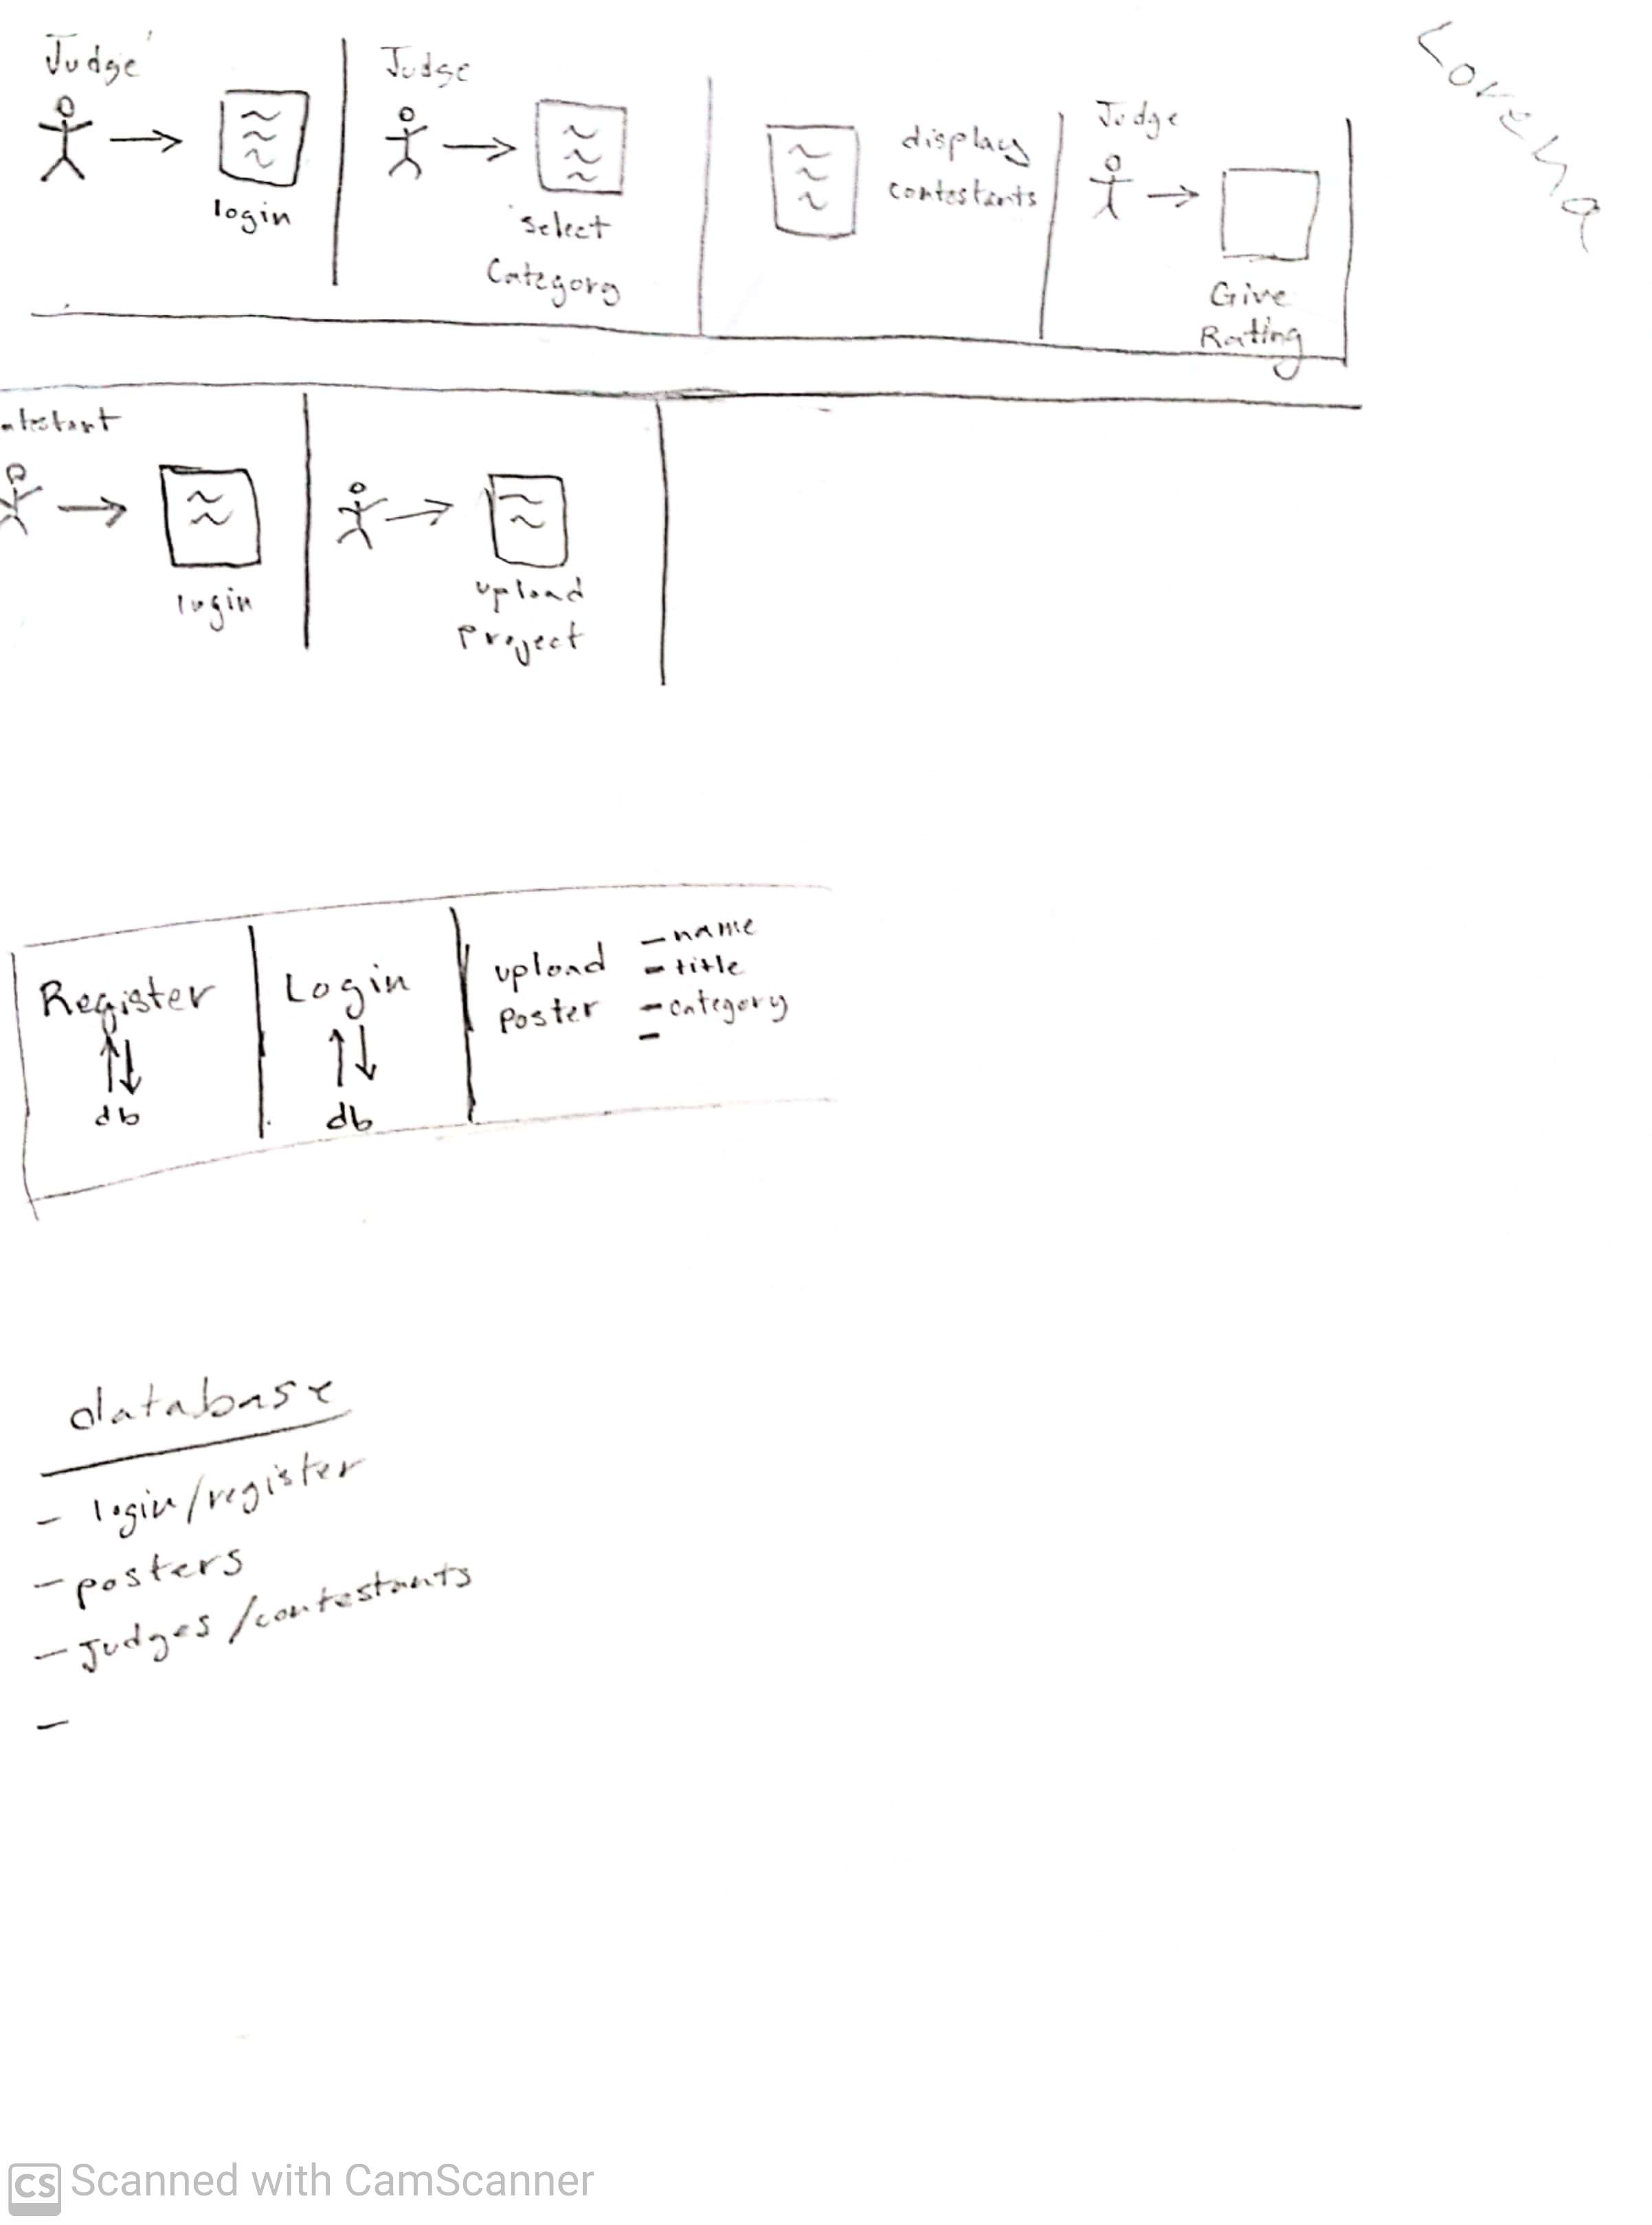 Judge
login
Judge
select
Category
display
contestants
Judge
Give
Rating
ntestant
login
upload
project
Register
db
Login
db
upload
poster
-name
-title
-category
-
database
- login/register
- posters
- Judges/contestants
-
CS Scanned with CamScanner